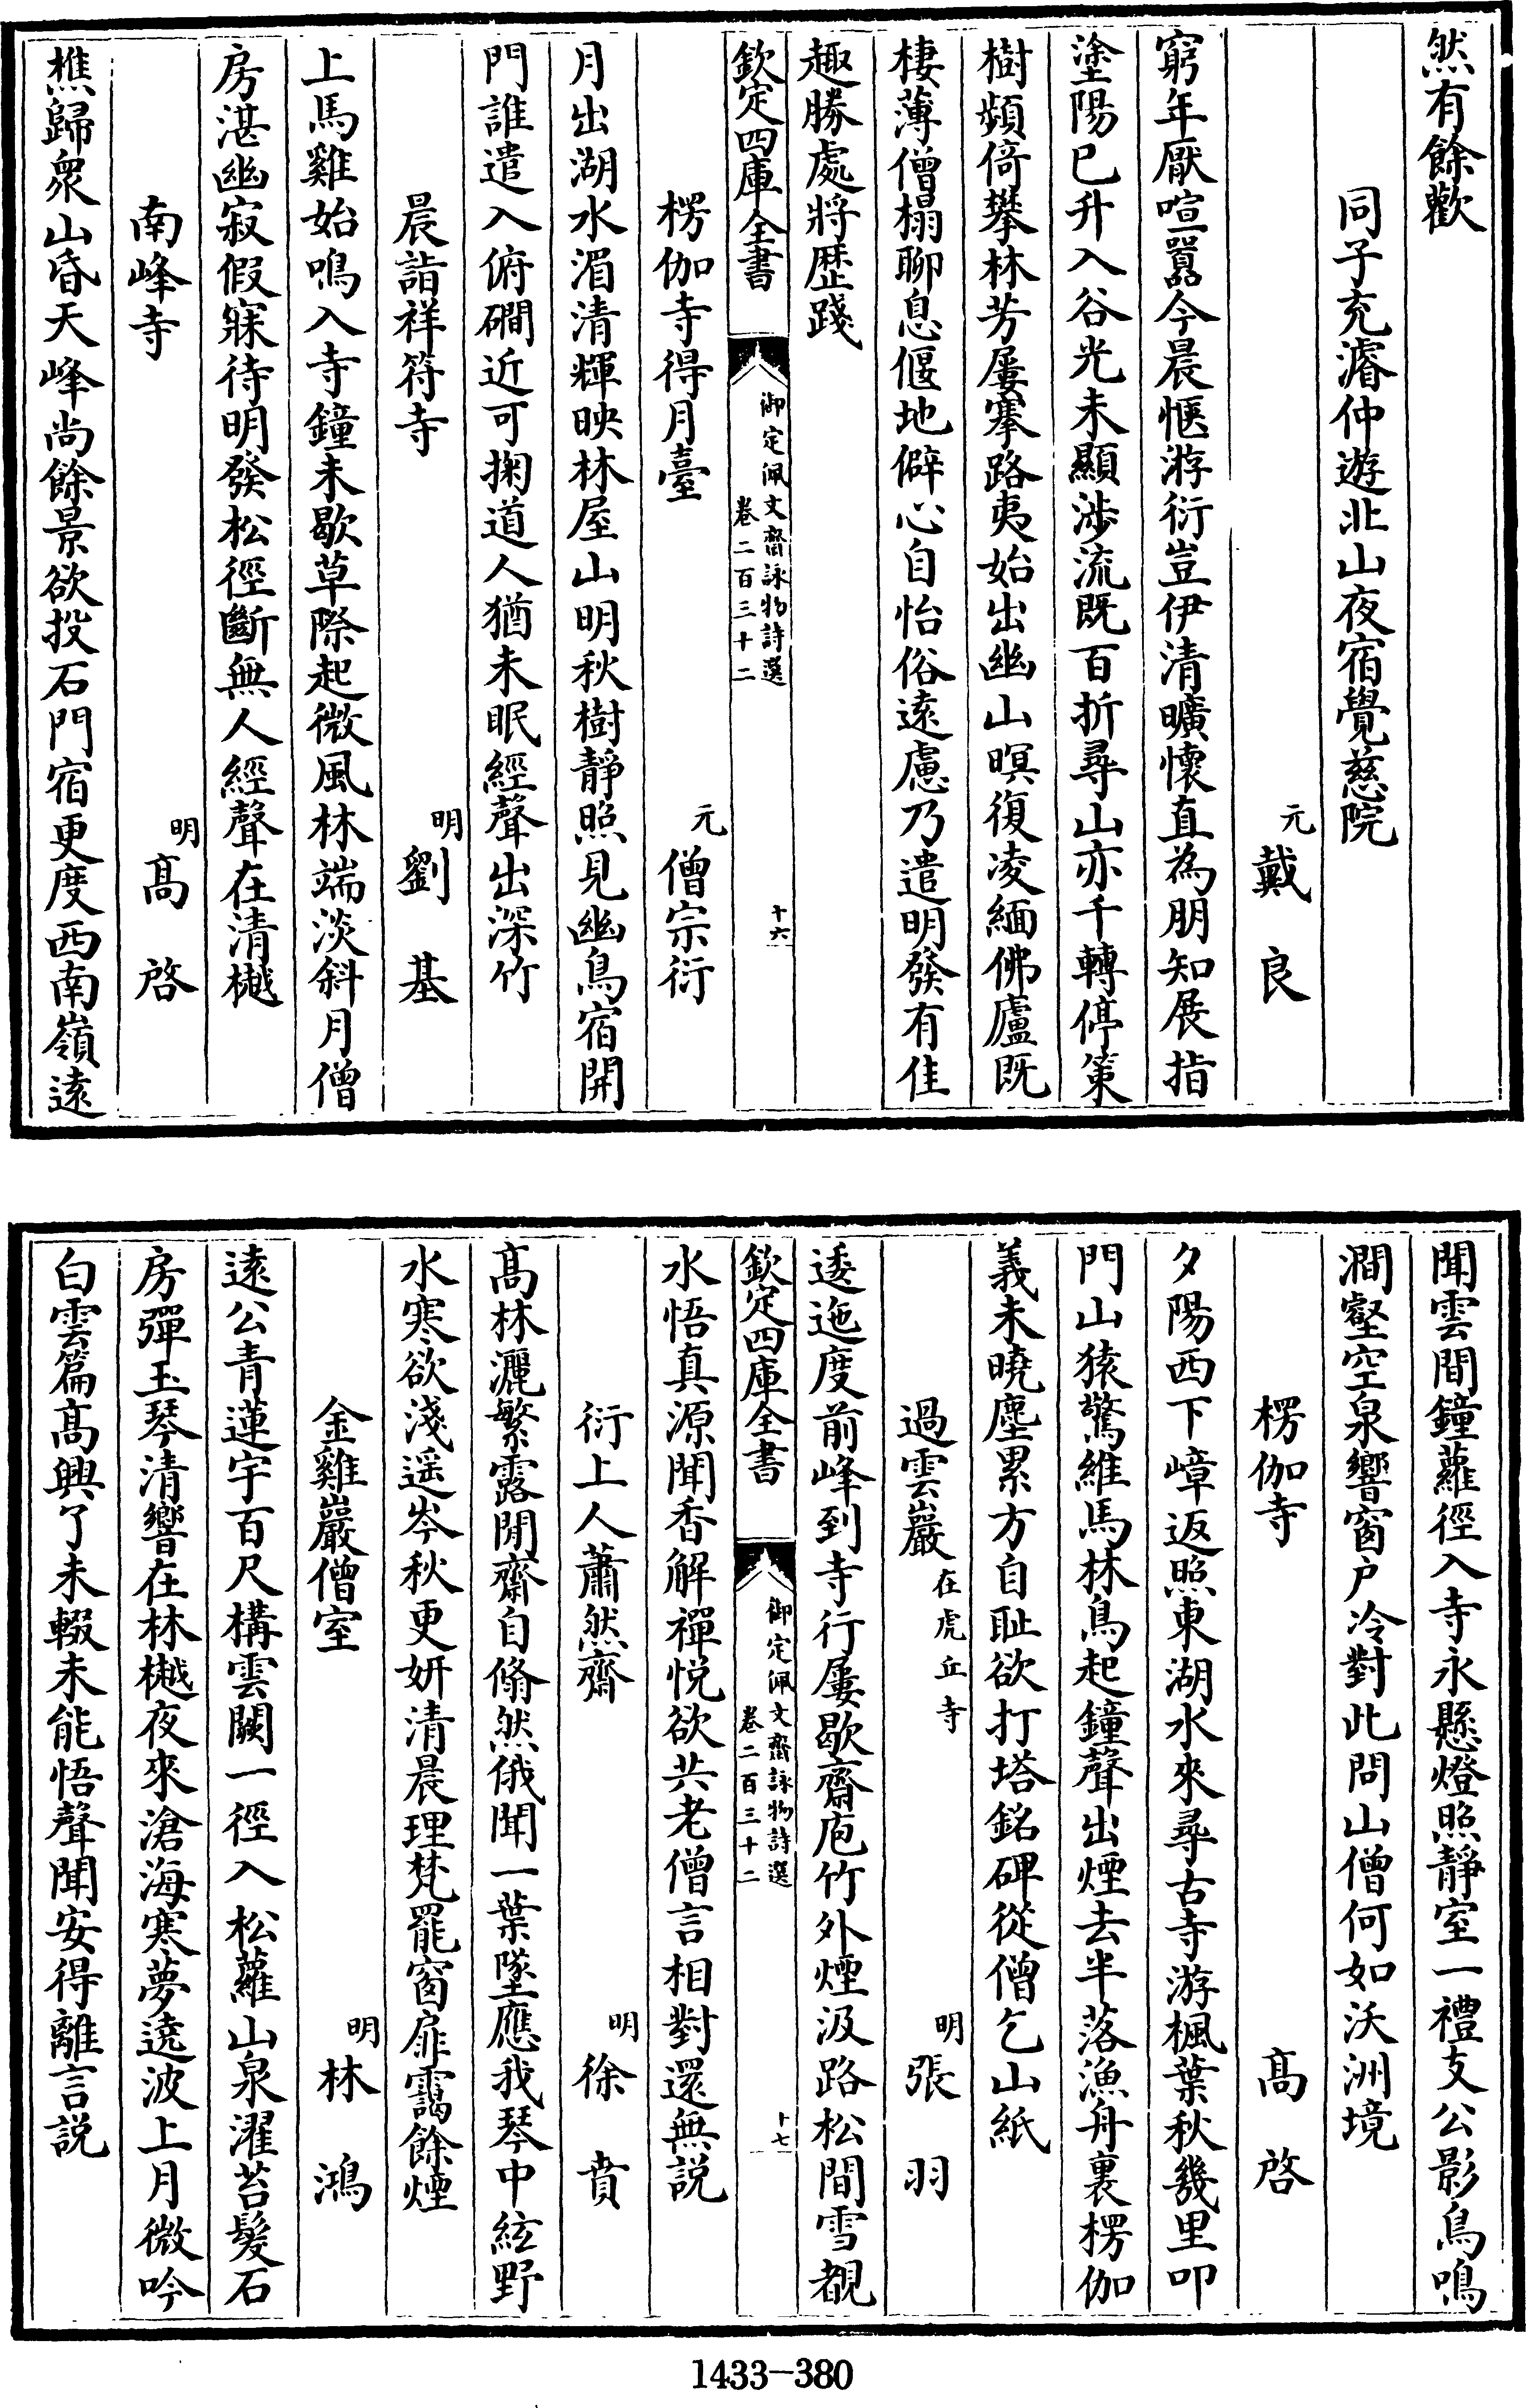 然有餘歡
同子充濬仲遊北山夜宿覺慈院
元戴良
窮年厭喧囂今晨愜游衍豈伊清曠懷直為朋知展指
塗陽已升入谷光未顯涉流既百折尋山亦千轉停策
樹頻倚攀林芳屢搴路夷始出幽山暝復凌緬佛廬既
棲薄僧榻聊息偃地僻心自怡俗遠慮乃遣明發有佳
趣勝處將歴踐
欽定四庫全書
御定佩文齋詠物詩選
卷二百三十二
十六
楞伽寺得月臺 元僧宗衍
月出湖水湄清輝映林屋山明秋樹靜照見幽鳥宿開
門誰遣入俯磵近可掬道人猶未眠經聲出深竹
晨詣祥符寺 明劉基
上馬雞始鳴入寺鐘未歇草際起微風林端淡斜月僧
房湛幽寂假寐待明發松徑斷無人經聲在清樾
南峰寺 明髙啓
樵歸衆山昏天峰尚餘景欲投石門宿更度西南嶺遠
聞雲間鐘蘿徑入寺永懸燈照靜室一禮支公影鳥鳴
澗壑空泉響窗户冷對此問山僧何如沃洲境
楞伽寺 髙啓
夕陽西下嶂返照東湖水來尋古寺游楓葉秋幾里叩
門山猿驚維馬林鳥起鐘聲出煙去半落漁舟裏楞伽
義未曉塵累方自恥欲打塔銘碑從僧乞山紙
過雲巖在虎丘寺 明張羽
逶迤度前峰到寺行屢歇齋庖竹外煙汲路松間雪覩
欽定四庫全書
御定佩文齋詠物詩選
卷二百三十二
十七
水悟真源聞香解禪悅欲共老僧言相對還無説
衍上人蕭然齋 明徐賁
髙林灑繁露閒齋自翛然俄聞一葉墜應我琴中絃野
水寒欲淺遥岑秋更妍清晨理梵罷窗扉靄餘煙
金雞巖僧室 明林鴻
遠公青蓮宇百尺構雲闕一徑入松蘿山泉濯苔髮石
房彈玉琴清響在林樾夜來滄海寒夢遶波上月微吟
白雲篇髙興了未輟未能悟聲聞安得離言説
1433-380